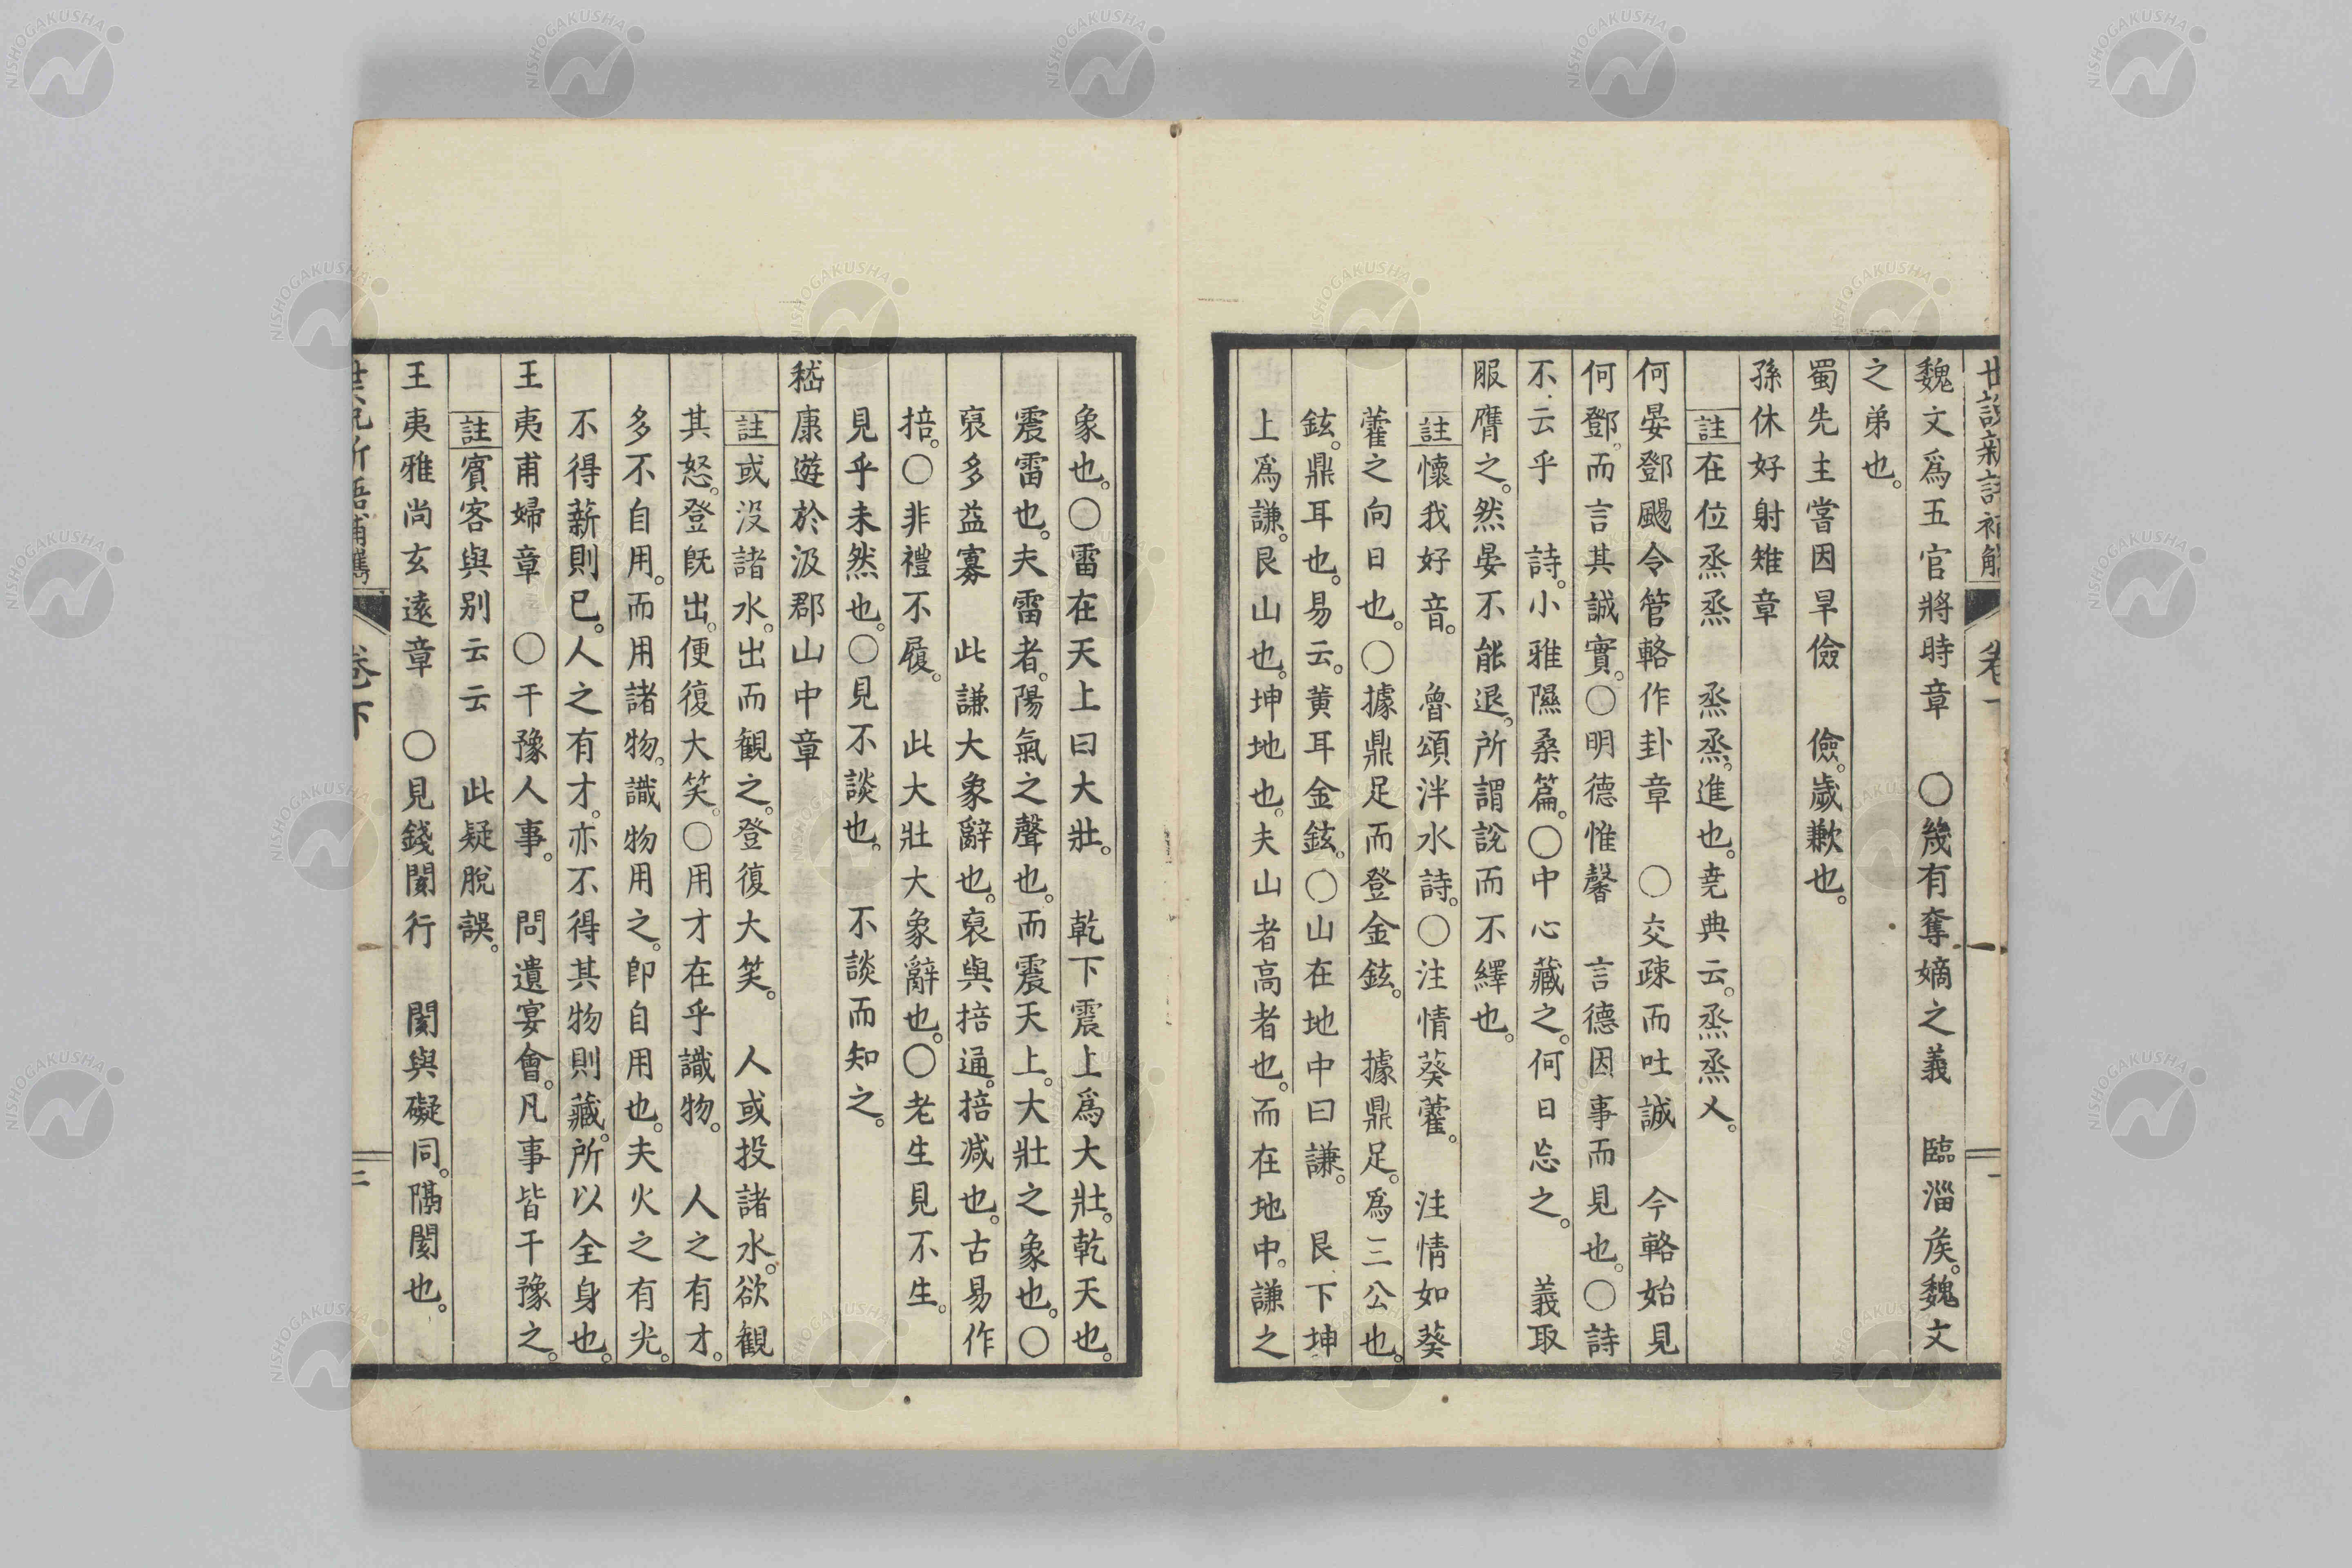 魏文爲五官將時章　〇幾有奪嫡之義　臨淄矦。魏文
之弟也。
蜀先主嘗因旱儉　儉。歲歉也。
孫休好射雉章
註在位烝烝　烝烝。進也。尭典云。烝烝乂。
何晏鄧颺令管輅作卦章　〇交疎而吐誠　今輅始見
何鄧。而言其誠實。〇明德惟馨　言德因事而見也。〇詩
不云乎　詩。小雅隰桑篇。〇中心藏之。何日忘之。　義取
服膺之。然晏不能退。所謂說而不繹也。
註懷我好音。　魯頌泮水詩。〇注情葵藿。　注情如葵
藿之向日也。〇據鼎足而登金鉉。　據鼎足。爲三公也。
鉉。鼎耳也。易云。黄耳金鉉。〇山在地中曰謙。　艮下坤
上爲謙。艮山也。坤地也。夫山者高者也。而在地中。謙之
象也。〇雷在天上曰大壯。　乾下震上爲大壯。乾天也。
震雷也。夫雷者。陽氣之聲也。而震天上。大壯之象也。〇
裒多益寡　此謙大象辭也。裒與掊通。掊减也。古易作
掊。〇非禮不履。　此大壯大象辭也。〇老生見不生。
見乎未然也。〇見不談也。　不談而知之。
嵇康遊於汲郡山中章
註或沒諸水。出而觀之。登復大笑。　人或投諸水。欲觀
其怒。登旣出。便復大笑。〇用才在乎識物。　人之有才。
多不自用。而用諸物。識物用之。卽自用也。夫火之有光。
不得薪則已。人之有才。亦不得其物則藏。所以全身也。
王夷甫婦章　〇干豫人事。　問遺宴會。凡事皆干豫之。
註賓客與别云云　此疑脫誤。
王夷雅尚玄遠章　〇見錢閡行　閡與礙同。隔閡也。